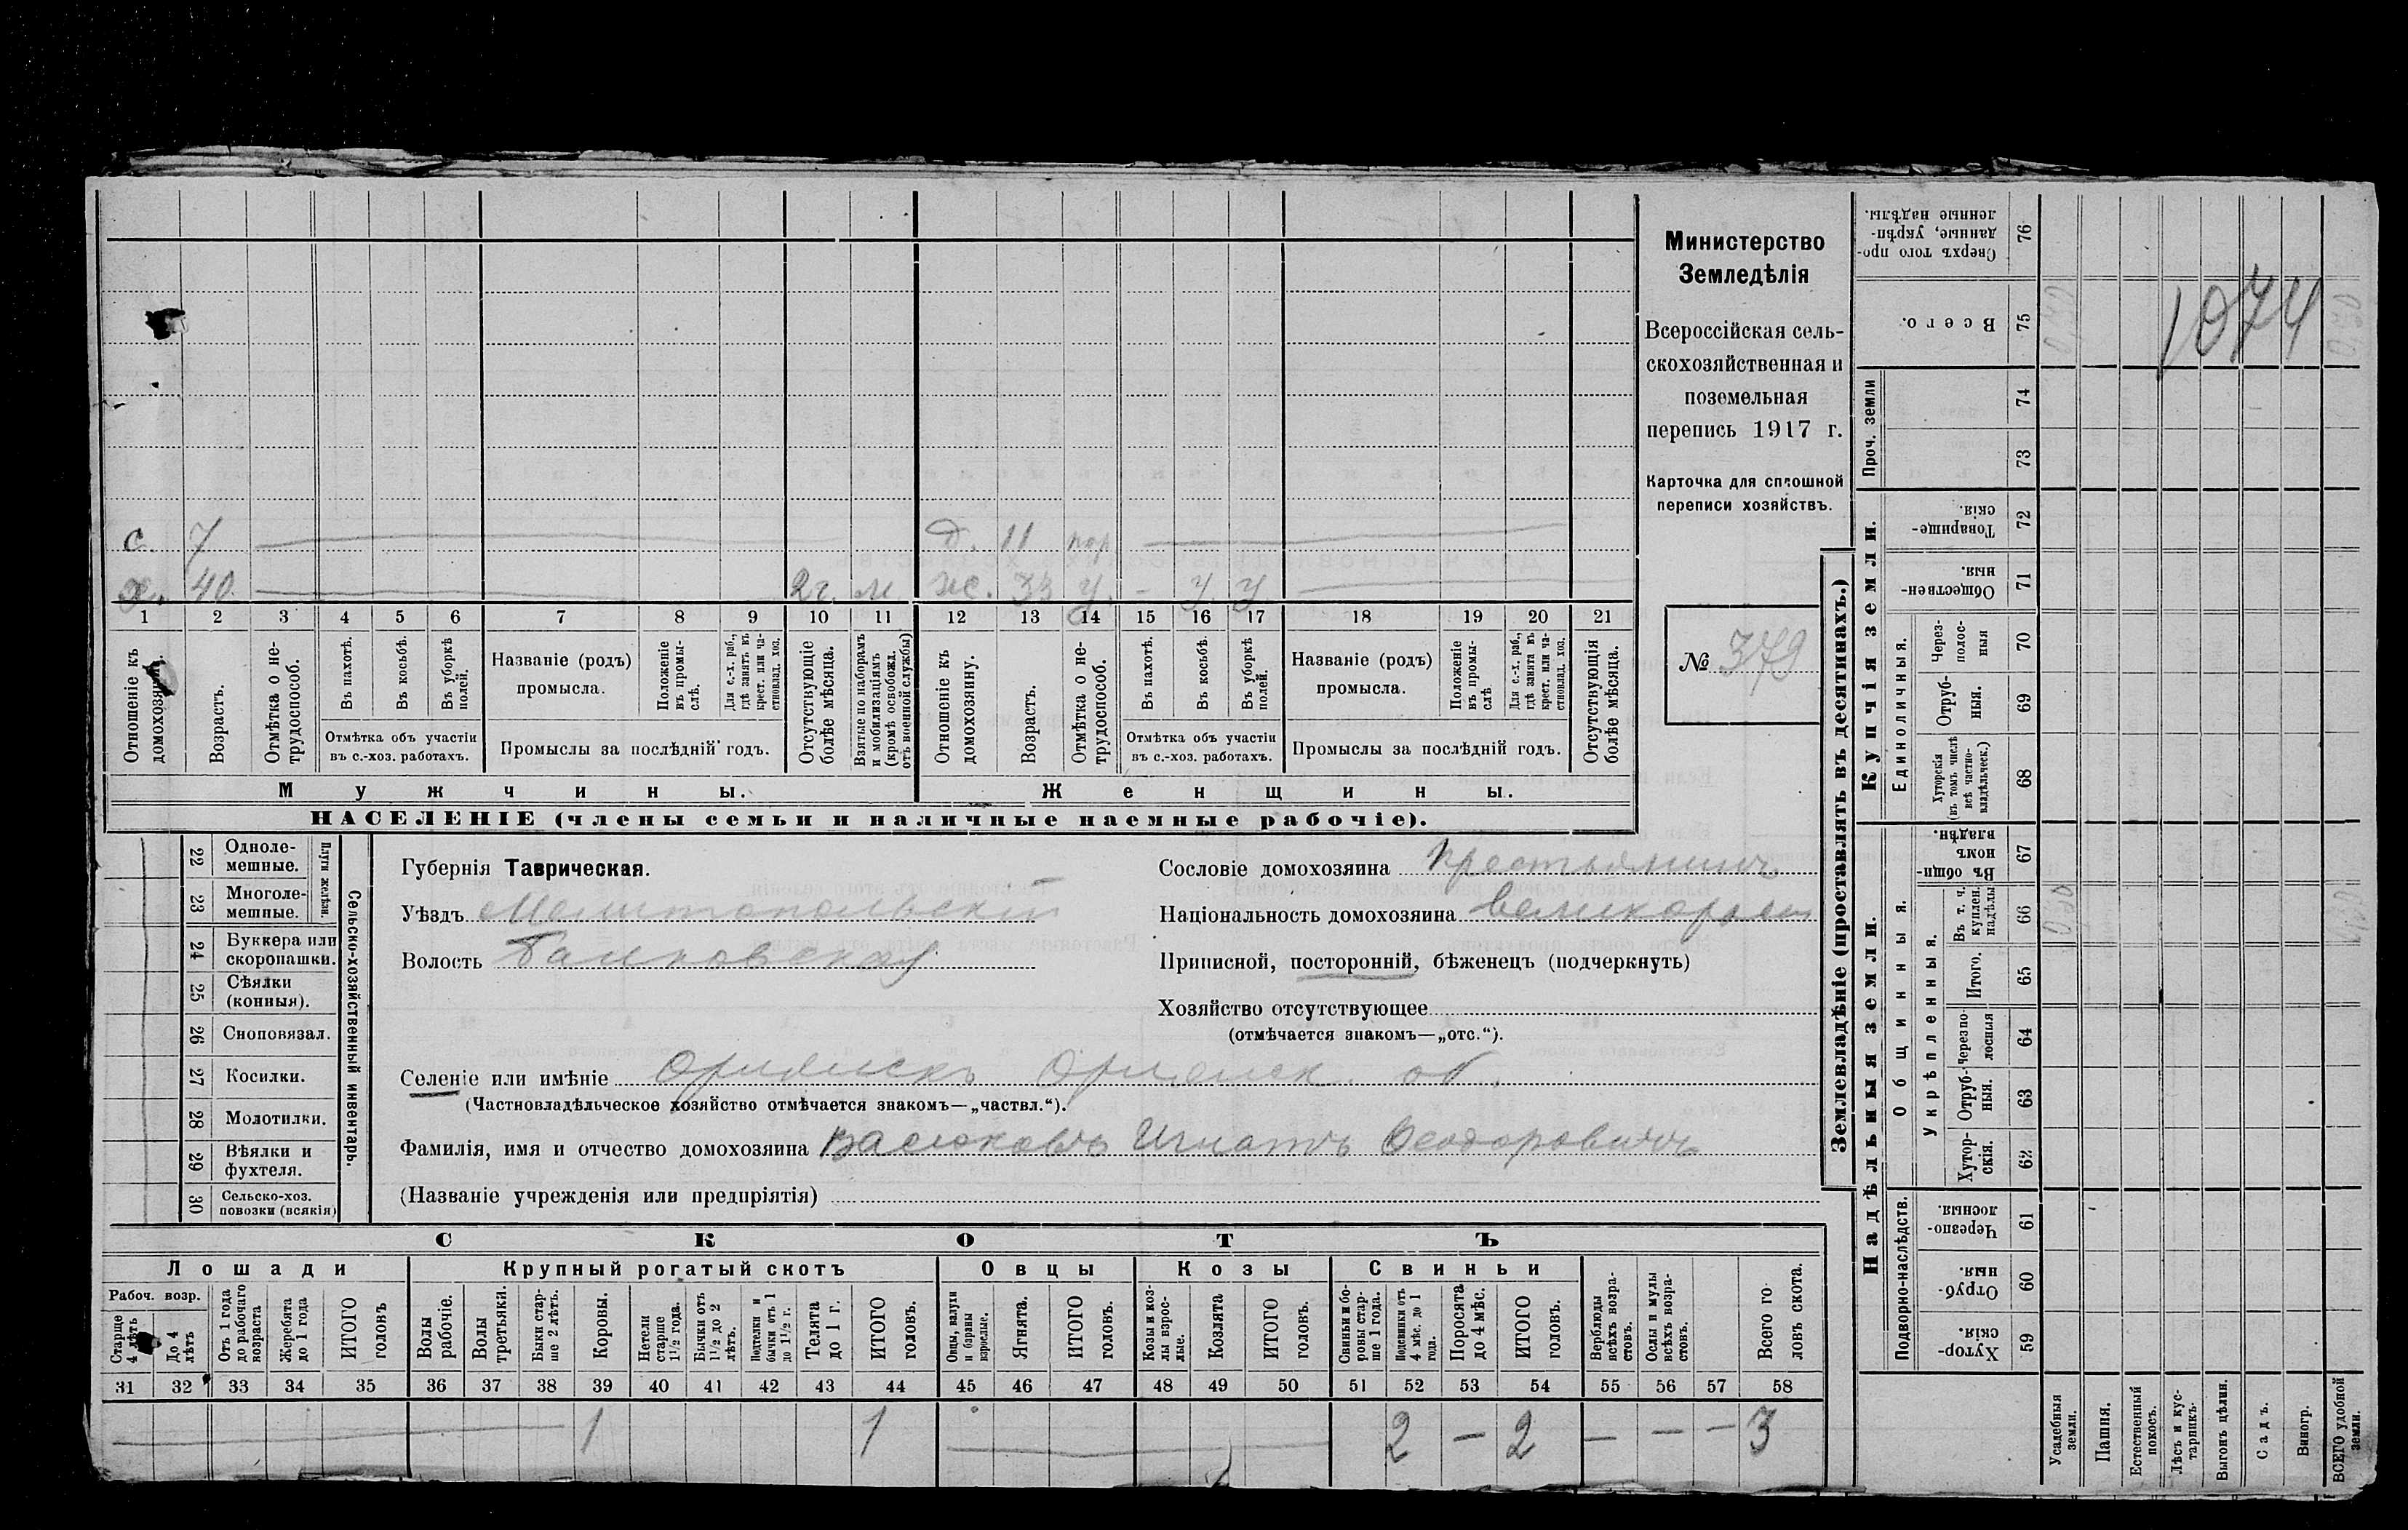 Министерство
Земледѣлія
Всероссійская сель-
скохозяйственная и
поземельная
перепись 1917 г.
Карточка для сплошной
переписи хозяйствъ.
№ 379
с. 7 д. 11
х. 40 2 г. м. ж. 33 у. - у. у.
1 2 3 4 5 6 7 8 9 10 11 12 13 14 15 16 17 18 19 20 21
Отношеніе къ домохозяину.
Возрастъ.
Отмѣтка о не-
трудоспособ.
Въ пахотѣ.
Въ косьбѣ.
Въ уборкѣ полей.
Отмѣтка объ участіи
въ с.-хоз. работахъ.
Названіе (родъ)
промысла.
Положеніе
въ промы-
слѣ.
Для с.-х. раб.,
гдѣ занятъ въ
крест. или ча-
стновлад. хоз.
Промыслы за послѣдній годъ.
Отсутствующіе
болѣе мѣсяца.
Взятые по наборамъ
и мобилизаціямъ
(кромѣ освобожд.
отъ военной службы)
Отношеніе къ
домохозяину.
Возрастъ.
Отмѣтка о не-
трудоспособ.
Въ пахотѣ.
Въ косьбѣ.
Въ уборкѣ
полей.
Отмѣтка объ участіи
въ с.-хоз. работахъ.
Названіе (родъ)
промысла.
Положеніе
въ промы-
слѣ
Для с.-х. раб.,
гдѣ занятъ въ
крест. или ча-
стновлад. хоз.
Промыслы за послѣдній годъ.
Отсутствующія
болѣе мѣсяца.
Мужчины.
Женщины.
НАСЕЛЕНІЕ (члены семьи и наличные наемные рабочіе).
Сельско-хозяйственный инвентарь.
Плуги желѣзн.
22 Одноле-
мешные.
23 Многоле-
мешные.
24 Буккера или
скоропашки.
25 Сѣялки
(конныя).
26 Сноповязал.
27 Косилки.
28 Молотилки.
29 Вѣялки и
фухтеля.
30 Сельско-хоз.
повозки (всякія)
Губернія Таврическая.
Уѣздъ Мелитопольскій
Волость
Сословіе домохозяина крестьянинъ
Національность домохозяина великороссъ
Приписной, посторонній, бѣженецъ (подчеркнуть)
Хозяйство отсутствующее
(отмѣчается знакомъ—„отс.“).
Селеніе или имѣніе об.
(Частновладѣльческое хозяйство отмѣчается знакомъ—„частвл.“).
Фамилія, имя и отчество домохозяина Васюковъ Игнатъ Ѳеодоровичъ
(Названіе учрежденія или предпріятія)
СКОТЪ
Лошади
Крупный рогатый скотъ
Овцы
Козы
Свиньи
Рабоч. возр.
Старше
4 лѣтъ
До 4
лѣтъ
Отъ 1 года
до рабочаго
возраста
Жеребята
до 1 года
ИТОГО
головъ
Волы
рабочіе.
Волы
третьяки.
Быки стар-
ше 2 лѣтъ.
Коровы.
Нетели
старше
1½ года.
Бычки отъ
1½ до 2
лѣтъ.
Подтелки и
бычки отъ 1
до 1½ г.
Телята
до 1 г.
ИТОГО
головъ.
Овцы, валухи
и бараны
взрослые.
Ягнята.
ИТОГО
головъ.
Козы и коз-
лы взрос-
лые.
Козлята
ИТОГО
головъ.
Свиньи и бо-
ровы стар-
ше 1 года.
Подсвинки отъ
4 мѣс. до 1
года.
Поросята
до 4 мѣс.
ИТОГО
головъ.
Верблюды
всѣхъ возра-
стовъ.
Ослы и мулы
всѣхъ возра-
стовъ.
Всего го
ловъ скота.
31 32 33 34 35 36 37 38 39 40 41 42 43 44 45 46 47 48 49 50 51 52 53 54 55 56 57 58
1 1 2 — 2 — — — 3
Землевладѣніе (проставлять въ десятинахъ.)
Надѣльныя земли.
Купчія земли.
Проч. земли
Подворно-наслѣдств.
Общинныя.
Укрѣпленныя.
Единоличныя.
Сверхъ того про-
данные, укрѣп-
ленные надѣлы.
76
Всего.
75
74
73
Товарище-
скія.
72
Обществен-
ныя.
71
Через-
полос-
ныя
70
Отруб-
ныя.
69
Хуторскія
(въ томъ числѣ
всѣ частно-
владѣльческ.)
68
Въ общин-
номъ
владѣн.
67
Въ т. ч.
куплен.
надѣлы
66
Итого.
65
Черезпо-
лосныя
64
Отруб-
ныя.
63
Хутор-
скія.
62
Черезпо-
лосныя.
61
Отруб-
ныя.
60
Хутор-
скія.
59
Усадебныя
земли.
Пашня.
Естественный
покосъ.
Лѣсъ и кус-
тарникъ.
Выгонъ цѣлин.
Садъ.
Виногр.
ВСЕГО удобной
земли.
1074